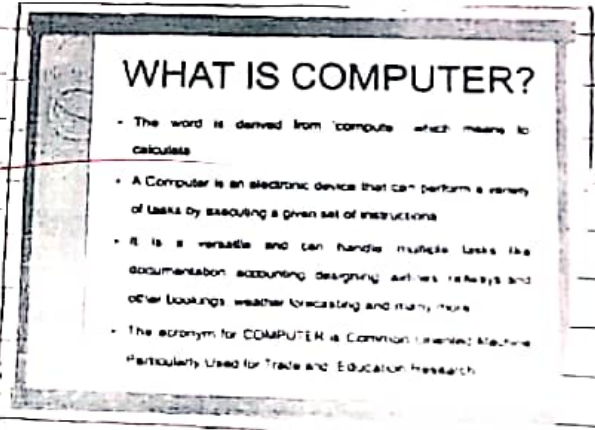 WHAT IS COMPUTER?
- The word is derived from 'compute' which means to
calculate
- A Computer is an electronic device that can perform a variety
of tasks by executing a given set of instructions
- It is a versatile and can handle multiple tasks like
documentation accounting designing, airlines railways and
other bookings, weather forecasting and many more
- The acronym for COMPUTER is Common Oriented Machine
Particularly Used for Trade and Education Research